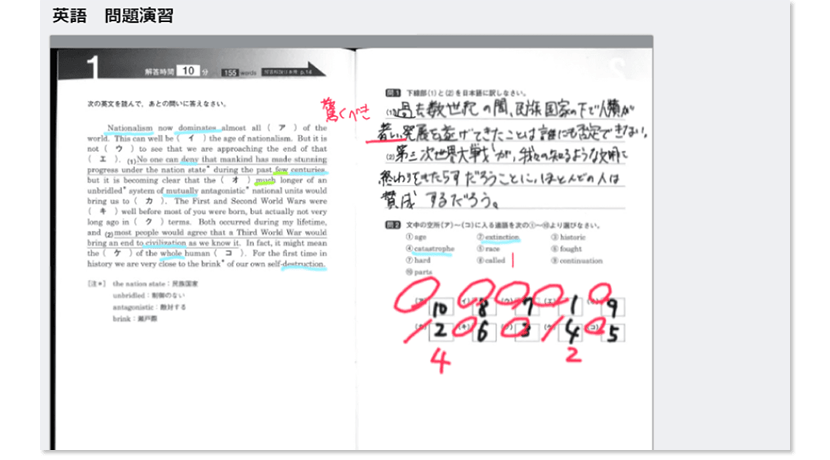 英語 問題演習
1
解答時間 10 分 155 words 解答解説は本冊 p.14
次の英文を読んで,あとの問いに答えなさい。
Nationalism now dominates almost all ( ア ) of the
world. This can well be ( イ ) the age of nationalism. But it is
not ( ウ ) to see that we are approaching the end of that
( エ ). (1)No one can deny that mankind has made stunning
progress under the nation state* during the past few centuries,
but it is becoming clear that the ( オ ) much longer of an
unbridled* system of mutually antagonistic* national units would
bring us to ( カ ). The First and Second World Wars were
( キ ) well before most of you were born, but actually not very
long ago in ( ク ) terms. Both occurred during my lifetime,
and (2)most people would agree that a Third World War would
bring an end to civilization as we know it. In fact, it might mean
the ( ケ ) of the whole human ( コ ). For the first time in
history we are very close to the brink* of our own self-destruction.
[注*] the nation state:民族国家
unbridled:制御のない
antagonistic:敵対する
brink:瀬戸際
問1 下線部(1)と(2)を日本語に訳しなさい。
(1)過去数世紀の間、民族国家の下で人類が
驚くべき
著しい発展を遂げてきたことは誰にも否定できない。
(2)第三次世界大戦が、我々の知るような文明に
終わりをもたらすだろうことに、ほとんどの人は
賛成するだろう。
問2 文中の空所(ア)~(コ)に入る適語を次の①~⑩より選びなさい。
① age ② extinction ③ historic
④ catastrophe ⑤ race ⑥ fought
⑦ hard ⑧ called ⑨ continuation
⑩ parts
10 8 7 1 9
2 6 3 4 5
4 2